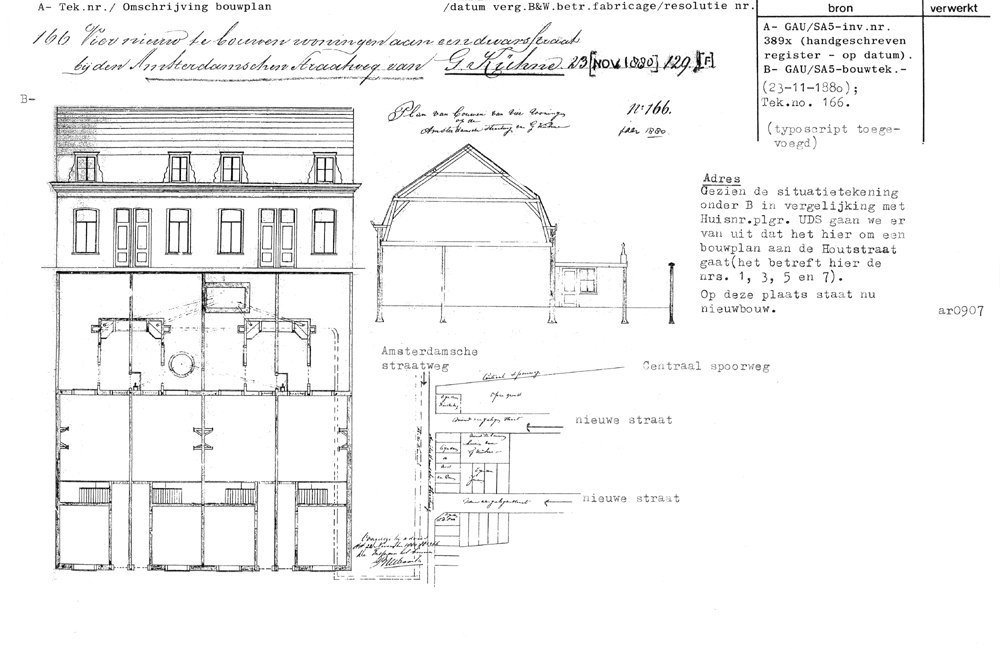 A- Tek.nr./ Omschrijving bouwplan /datum verg.B&W.betr.fabricage/resolutie nr.
bron verwerkt
166 Vier nieuw te bouwen woningen aan een dwarsstraat
bij den Amsterdamschen Straatweg van G. Kühne 23 [NOV. 1880] 129 [F]
A- GAU/SA5-inv.nr.
389x (handgeschreven
register - op datum).
B- GAU/SA5-bouwtek.-
(23-11-1880);
Tek.no. 166.
(typoscript toege-
voegd)
B-
Plan van bouwen van vier Woningen
op de
Amsterdamsche Straatweg
No 166.
jaar 1880.
Adres
Gezien de situatietekening
onder B in vergelijking met
Huisnr.plgr. UDS gaan we er
van uit dat het hier om een
bouwplan aan de Houtstraat
gaat(het betreft hier de
nrs. 1, 3, 5 en 7).
Op deze plaats staat nu
nieuwbouw.
ar0907
Amsterdamsche
straatweg
Centraal spoorweg
Centraal Spoorweg
Open grond
nieuwe straat
nieuwe straat